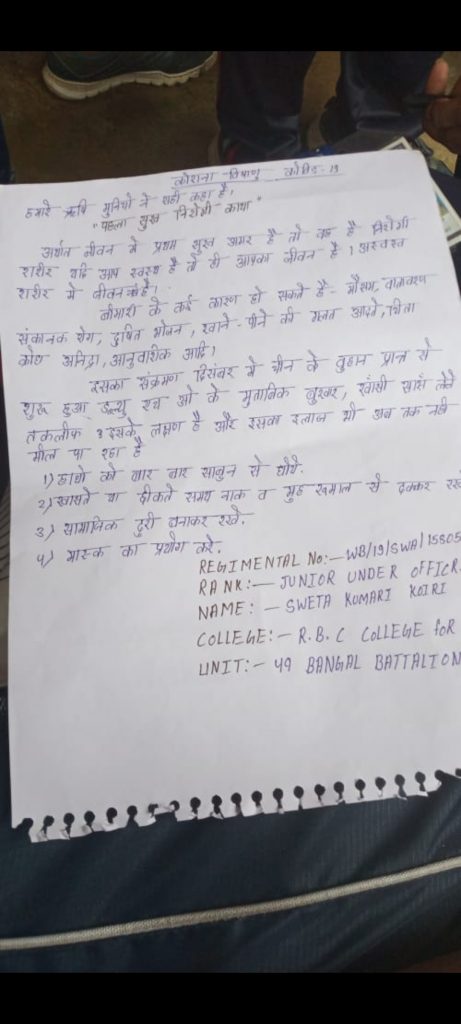 कोराना -विषाणु कोविड-19
हमारे ऋषि मुनियों ने सही कहा है,
"पहला सुख निरोगी काया"
अर्थात जीवन में प्रथम सुख अगर है तो वह है निरोगी
शरीर यदि आप स्वस्थ है तो ही आपका जीवन है। अस्वस्थ
शरीर में जीवन है।
बीमारी के कई कारण हो सकते है- मौसम, वातावरण
संकानक रोग, दुषित भोजन, खाने-पीने की गलत आदते, चिंता
अनिद्रा, आनुवांशिक आदि।
इसका संक्रमण दिसंबर में चीन के वुहान प्रान्त से
शुरू हुआ, डब्ल्यु एच ओ के मुताबिक बुखार, खाँसी सांस लेने
तकलीफ इसके लक्षण है और इसका इलाज भी अब तक नही
मील पा रहा है
1) हाथो को बार बार साबुन से धोये.
2) खांसते या छीकते समय नाक व मुह रुमाल से ढक्कर रखे
3) सामाजिक दुरी बनाकर रखे.
4) मास्क का प्रयोग करे.
REGIMENTAL No:- WB/19/SWA/15505
RANK:- JUNIOR UNDER OFFICR
NAME:- SWETA KUMARI KOIRI
COLLEGE:- R.B.C COLLEGE for
UNIT:- 49 BANGAL BATTALION